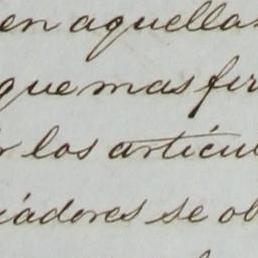 en aquellas
que mas fir
r los articu
iadores se ob